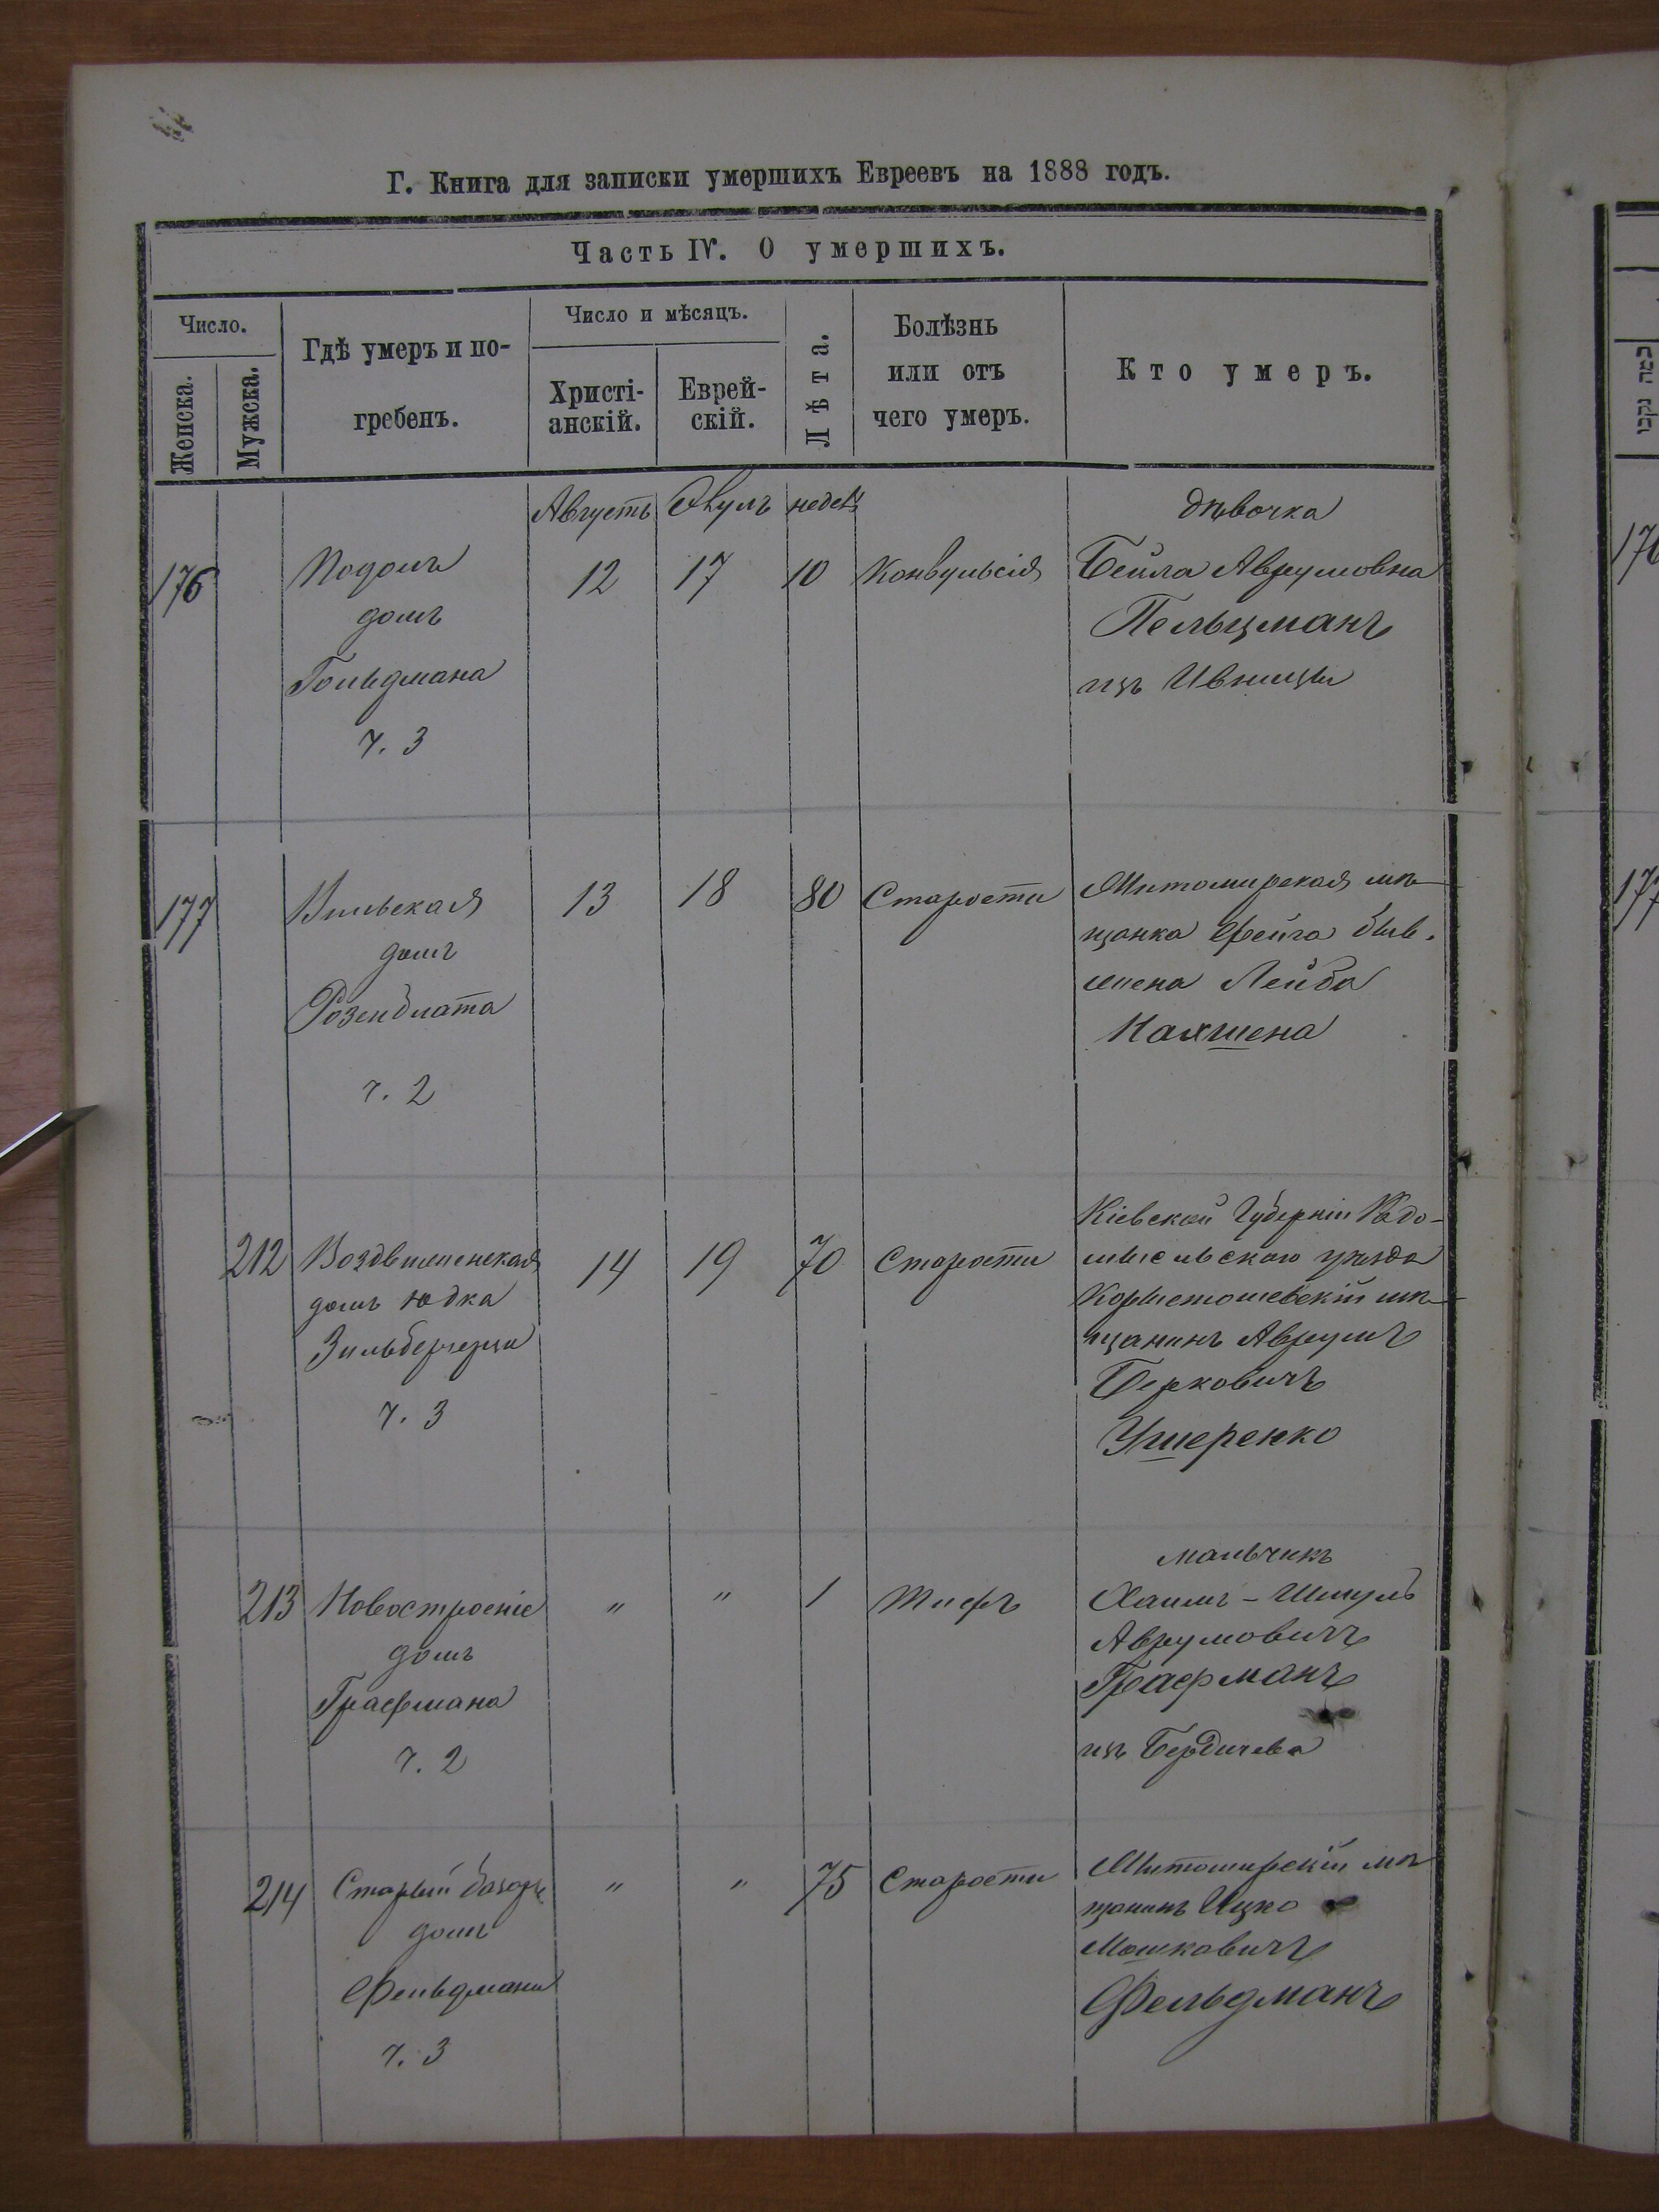 Г. Книга для записки умершихъ Евреевъ на 1888 годъ.
Часть IV. О умершихъ.
Число.
Женска.
Мужска.
Гдѣ умеръ и по-
гребенъ.
Число и мѣсяцъ.
Христі-
анскій.
Еврей-
скій.
Лѣта.
Болѣзнь
или отъ
чего умеръ.
Кто умеръ.
Августъ
недел
176
Подолъ
домъ
Гольдмана
ч. 3
12
17
10
Конвульсія
дѣвочка
Бейла Аврумовна
Пельцманъ
изъ Ивницы
177
Вильская
домъ
Розенблата
ч. 2
13
18
80
Старости
Житомирская мѣ-
щанка Фейга быв.
жена Лейба
212
Воздвиженская
домъ Юдка
ч. 3
14
19
70
Старости
Кіевской Губерніи Радо-
мысльскаго уѣзда
мѣ-
щанинъ Аврумъ
Берковичъ
Ушеренко
213
Новостроеніе
домъ
Графмана
ч. 2
"
"
1
Тифъ
мальчикъ
Хаимъ-Шмуль
Аврумовичъ
Графманъ
изъ Бердичева
214
Старый базаръ
домъ
Фельдмана
ч. 3
"
"
75
Старости
Житомирскій мѣ-
щанинъ Ицко
Мошковичъ
Фельдманъ
176
177